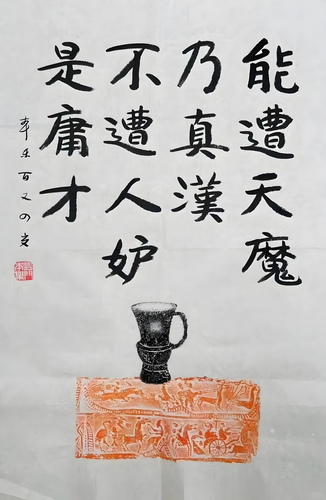 能遭天魔
乃真漢
不遭人妒
是庸才
辛丑百又四歲